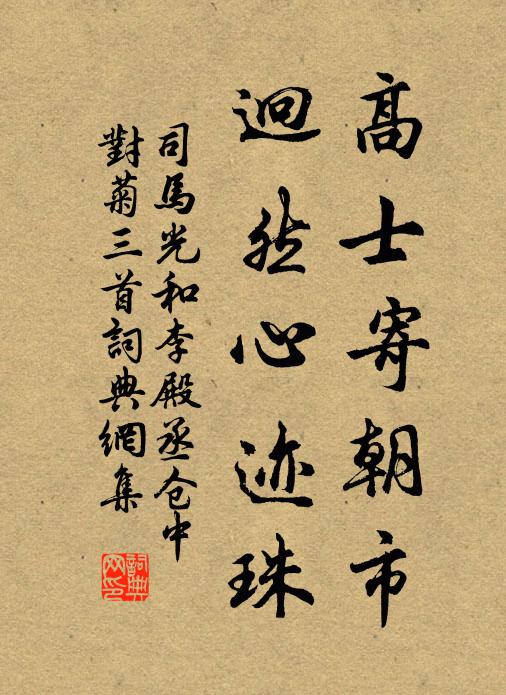 高士寄朝市
迥然心迹珠
司馬光和李殿丞仓中
對菊三首詞典網集
詞典网印